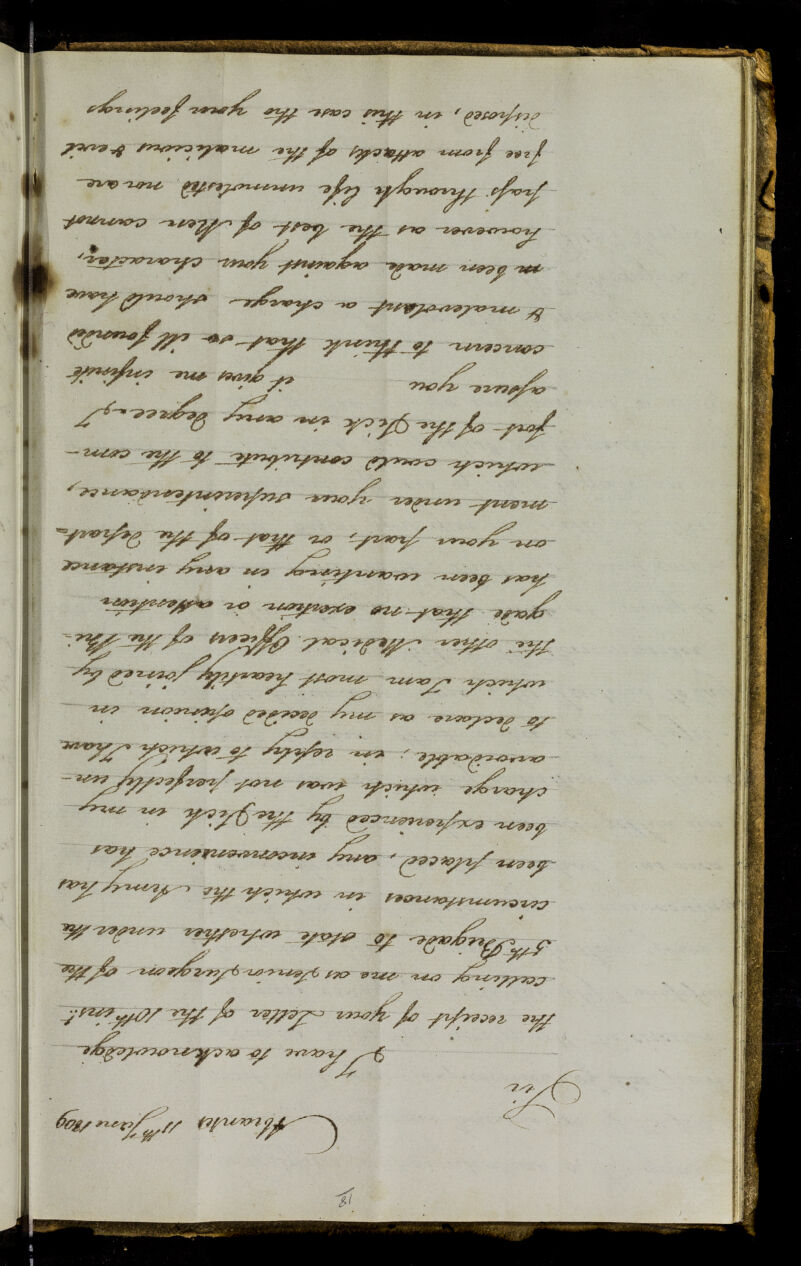 18
Abrantes 11th June 1809
Sir
I have to acknowledge
the receipt of your Letter of the 10th inst.
calling on me as Senior Surgeon of the
5th Brigade to state whether under the
circumstances in which the Army has
been placed, any inconvenience has
been experienced by the Sick in my
charge which was not perfectly un-
avoidable; in reply to which I have
to declare as my decided opinion in
which I am most heartily joined by
the other Medical Officers of the Bri-
gade that no exertion or attention
has been wanting in any instance
on your part, or that of the depart-
ment under your superintendance,
which could contribute to the com-
fort of the Sick in any degree. I
assure you it gives me infinite
concern to think that so ill founded
& malevolant a charge should have
been made against your character,
however as the best of Men cannot
pass through life unmolested nor are
free from attacks of the malicious & evil
disposed, in this case tho your feelings